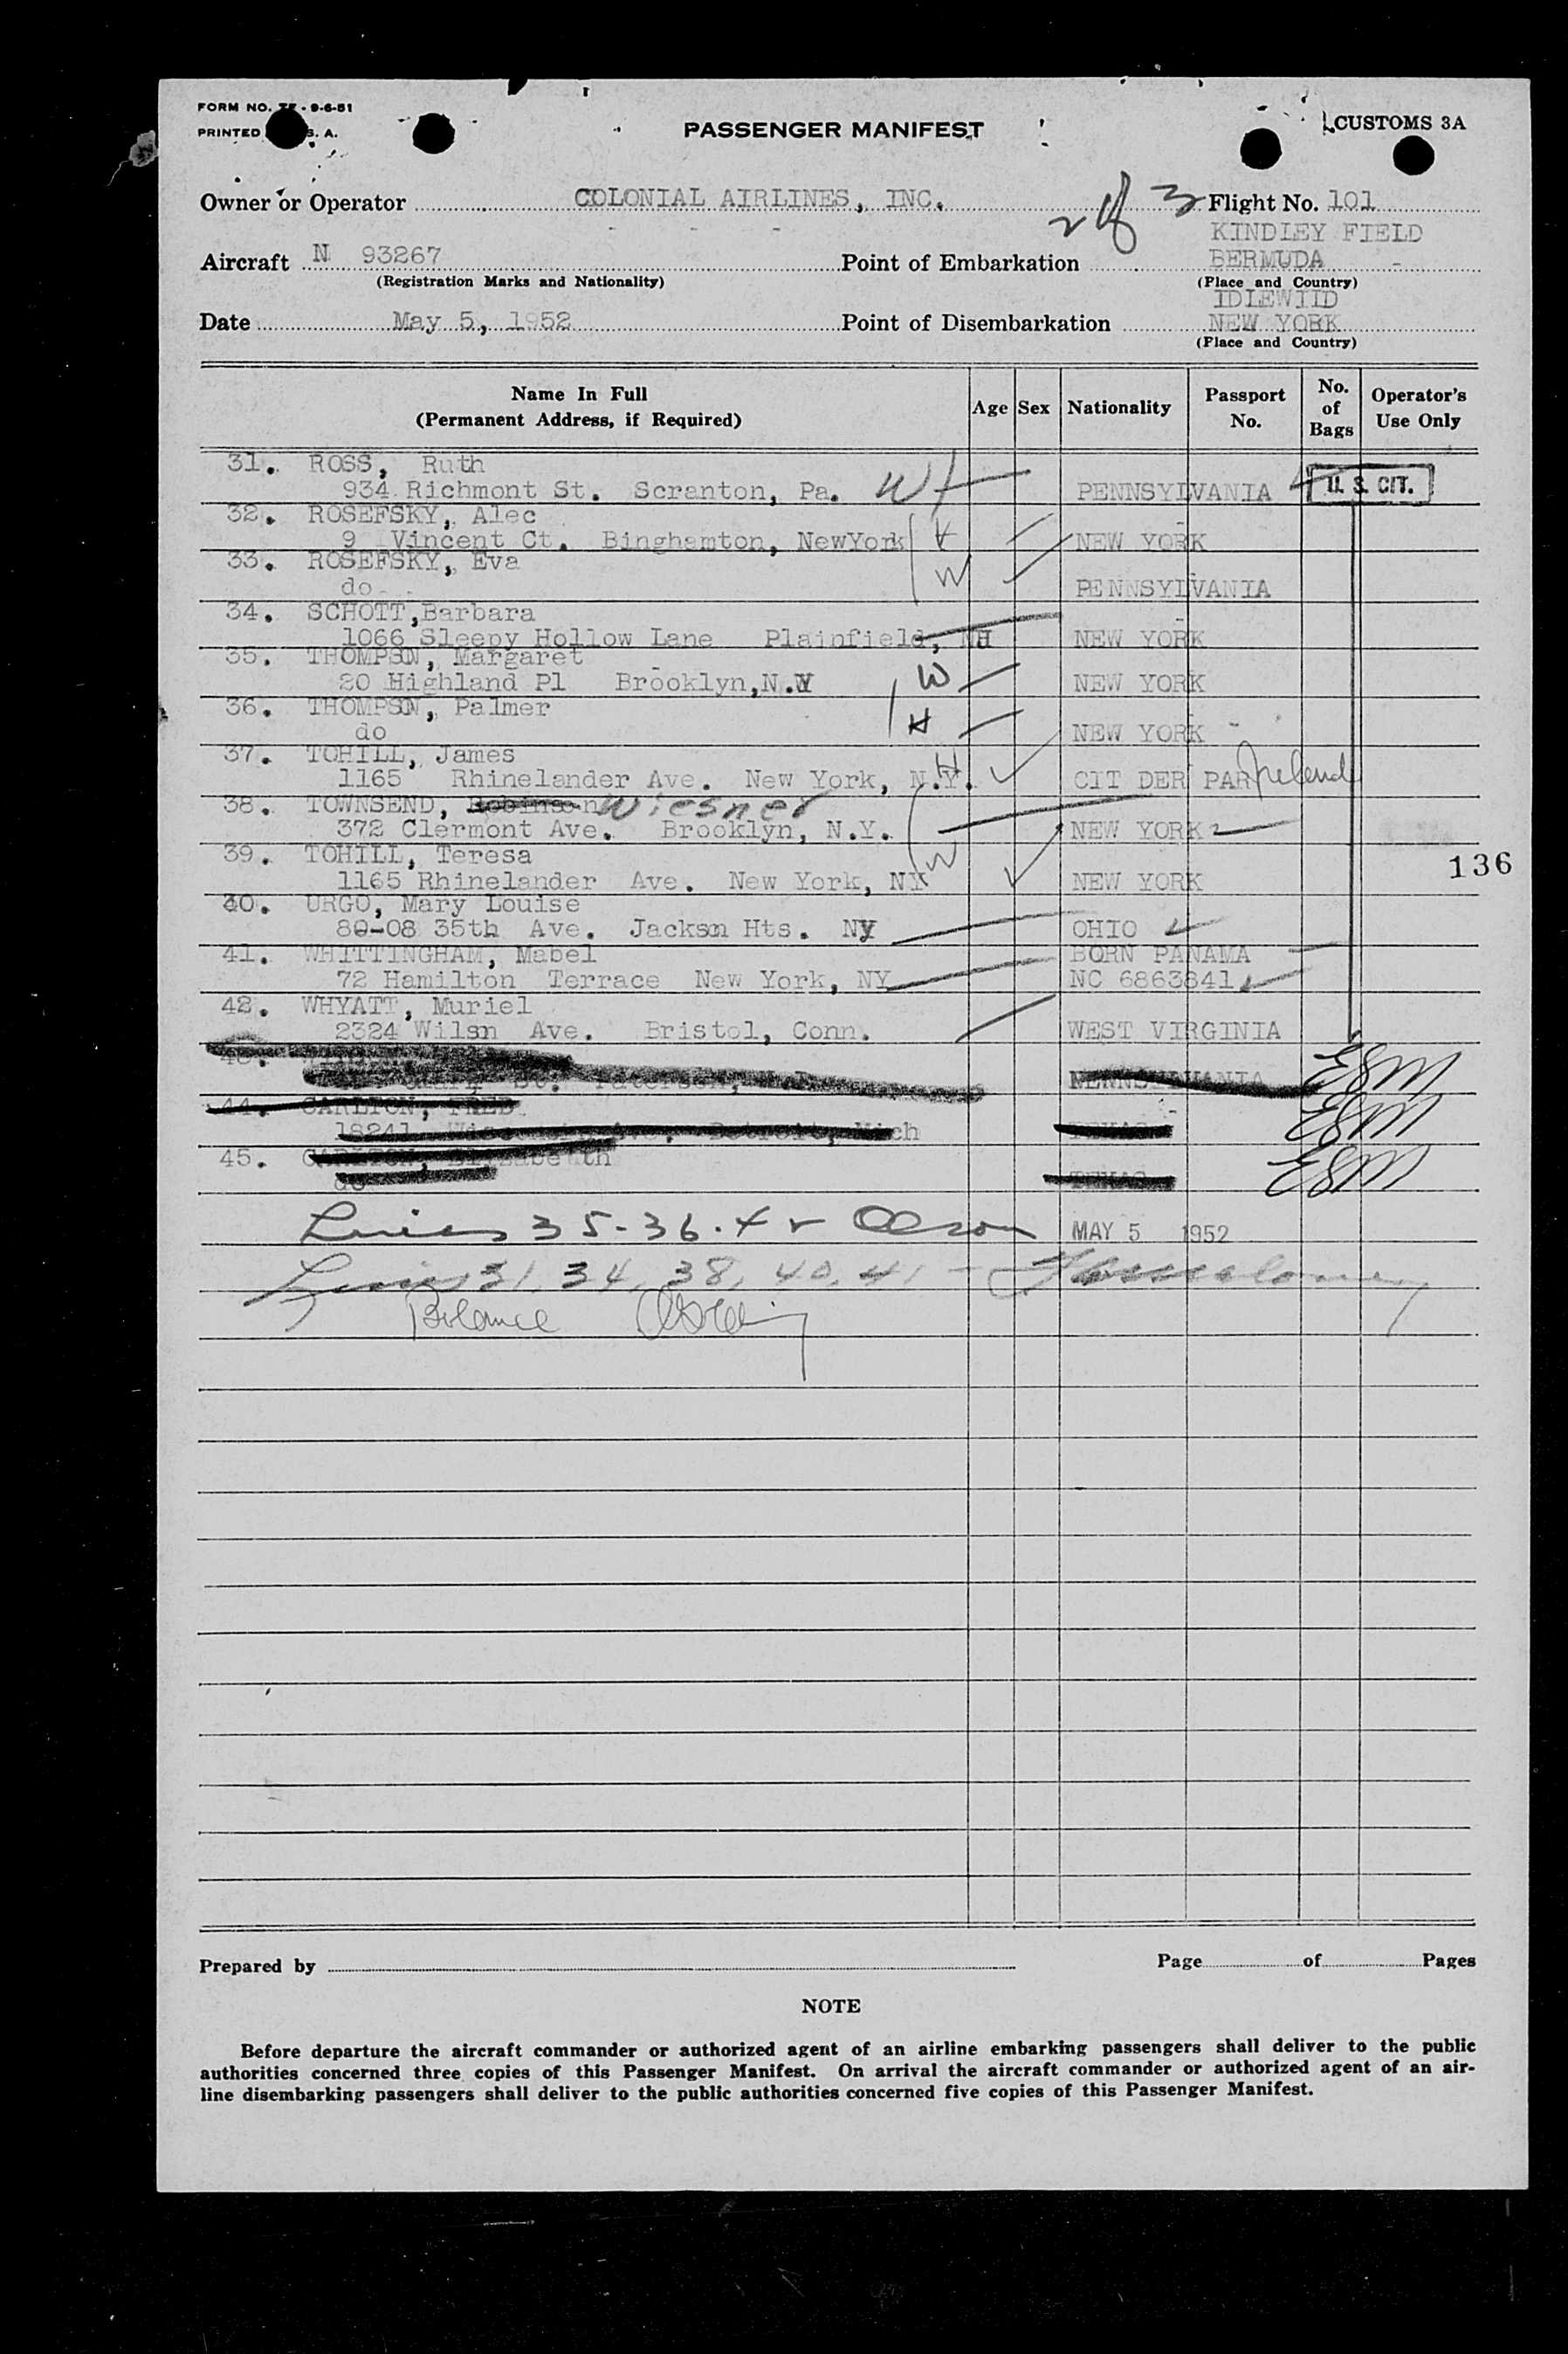 FORM NO. TF - 9-6-51
PRINTED S. A.
PASSENGER MANIFEST
CUSTOMS 3A
2 of 3
Owner or Operator COLONIAL AIRLINES, INC. Flight No. 101
KINDLEY FIELD
Aircraft N 93267 Point of Embarkation BERMUDA
(Registration Marks and Nationality) (Place and Country)
IDLEWIID
Date May 5, 1952 Point of Disembarkation NEW YORK
(Place and Country)
Name In Full
(Permanent Address, if Required)
Age Sex Nationality Passport No. No. of Bags Operator's Use Only
31. ROSS, Ruth
934 Richmont St. Scranton, Pa. W PENNSYLVANIA U. S. CIT.
32. ROSEFSKY, Alec
9 Vincent Ct. Binghamton, NewYork H NEW YORK
33. ROSEFSKY, Eva
do W PENNSYLVANIA
34. SCHOTT,Barbara
1066 Sleepy Hollow Lane Plainfield, NH NEW YORK
35. THOMPSON, Margaret
20 Highland Pl Brooklyn,N.Y W NEW YORK
36. THOMPSON, Palmer
do H NEW YORK
37. TOHILL, James
1165 Rhinelander Ave. New York, N.Y. H CIT DER PAR Ireland
38. TOWNSEND, Robinson Wiesner
372 Clermont Ave. Brooklyn, N.Y. NEW YORK
39. TOHILL, Teresa
1165 Rhinelander Ave. New York, NY W NEW YORK
136
40. URGO, Mary Louise
80-08 35th Ave. Jackson Hts. Ny OHIO
41. WHITTINGHAM, Mabel BORN PANAMA
72 Hamilton Terrace New York, NY NC 6863841
42. WHYATT, Muriel
2324 Wilson Ave. Bristol, Conn. WEST VIRGINIA
St. Paterson, PENNSYLVANIA ESM
44. CARLTON, FRED
18241 Ave. Detroit, Mich TEXAS ESM
45. CARLTON, Elizabeth
do TEXAS ESM
Lines 35-36.42 Olson MAY 5 1952
Lines 31, 34, 38, 40, 41 -
Balance
Prepared by Page of Pages
NOTE
Before departure the aircraft commander or authorized agent of an airline embarking passengers shall deliver to the public
authorities concerned three copies of this Passenger Manifest. On arrival the aircraft commander or authorized agent of an air-
line disembarking passengers shall deliver to the public authorities concerned five copies of this Passenger Manifest.